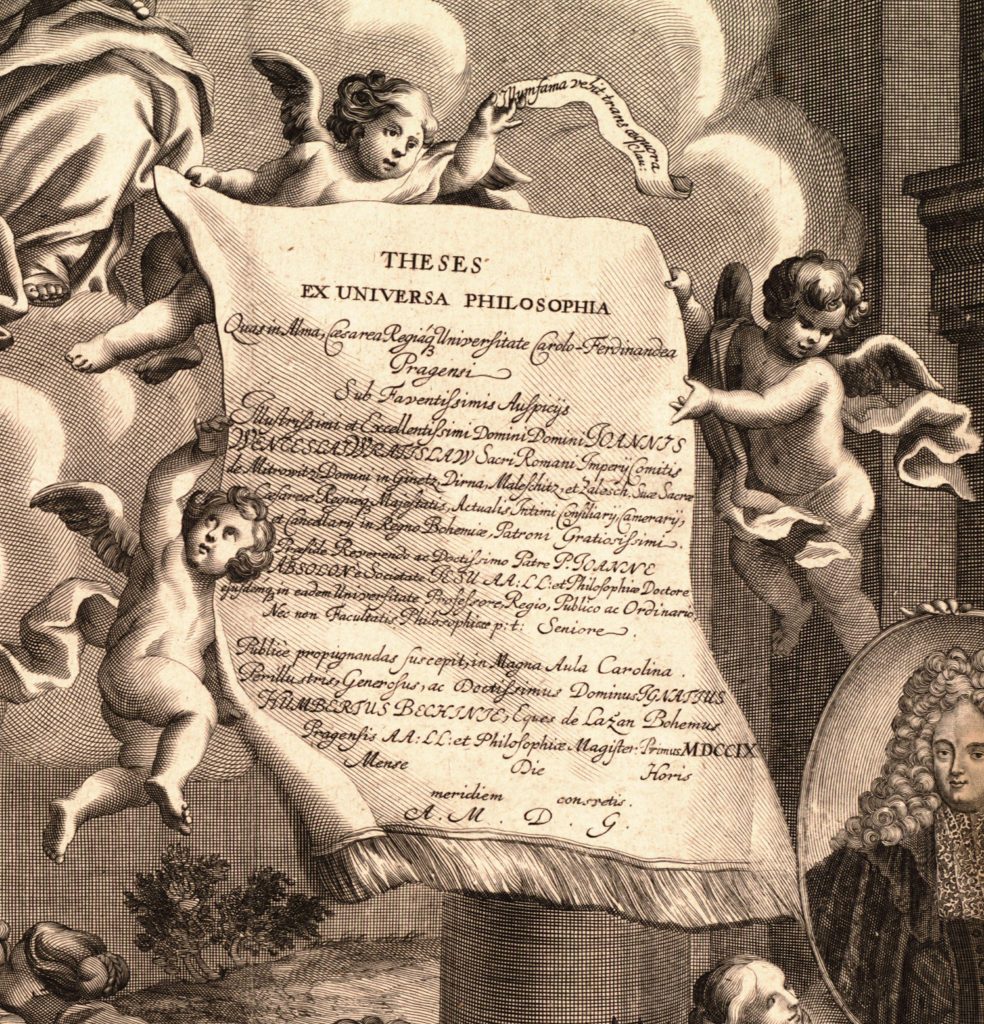 famam vehit trans æquora
Clau:
THESES
EX UNIVERSA PHILOSOPHIA
Quas in Alma, Cæsarea Regiaq́ꝫ Universitate Carolo-Ferdinandea
Pragensi
Sub Faventissimis Auspicijs
Illustrissimi et Excellentissimi Domini Domini IOANNIS
WENCESLAI WRATISLAW Sacri Romani Imperij Comitis
de Mitrowitz, Domini in Ginetz, Dirna, Maleschitz, et Zalesch, Suæ Sacræ
Cæsareæ Regiæq, Majestatis, Actualis Intimi Consiliarij Camerarij,
et Cancellarij in Regno Bohemiæ, Patroni Gratiosissimi.
Præside Reverendo ac Doctissimo Patre P. IOANNE
ABSOLON è Societate IESU AA: LL: et Philosophiæ Doctore
ejusdemq, in eadem Universitate Professore Regio, Publico ac Ordinario,
Nec non Facultatis Philosophicæ p: t: Seniore.
Publicè propignandas suscepit, in Magna Aula Carolina.
Perillustris, Generosus, ac Doctissimus Dominus IGNATIUS
HUMBERTUS BECHINIE, Eques de Lażan Bohemus
Pragensis AA: LL: et Philosophiæ Magister. Primus MDCCIX
Mense Die Horis
meridiem consvetis.
A. M. D. G.